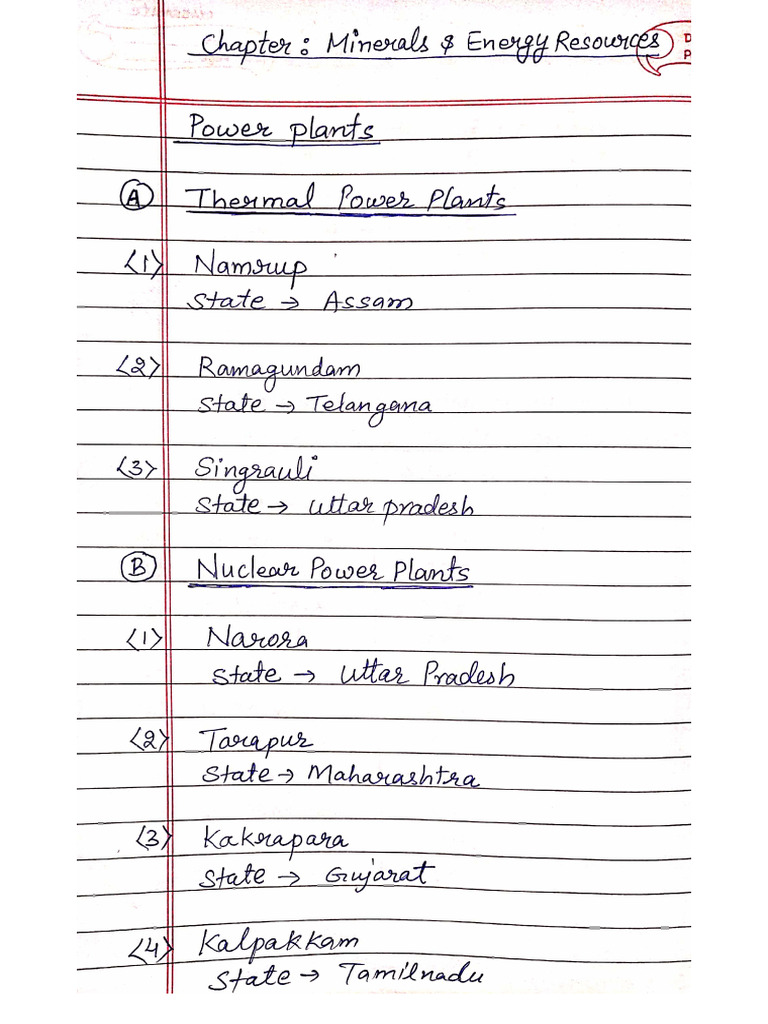 Chapter: Minerals & Energy Resources
D
P
Power plants
(A) Thermal Power Plants
<1> Namrup
State → Assam
<2> Ramagundam
State → Telangana
<3> Singrauli
State → Uttar pradesh
(B) Nuclear Power Plants
<1> Narora
State → Uttar Pradesh
<2> Tarapur
State → Maharashtra
<3> Kakrapara
State → Gujarat
<4> Kalpakkam
State → Tamilnadu